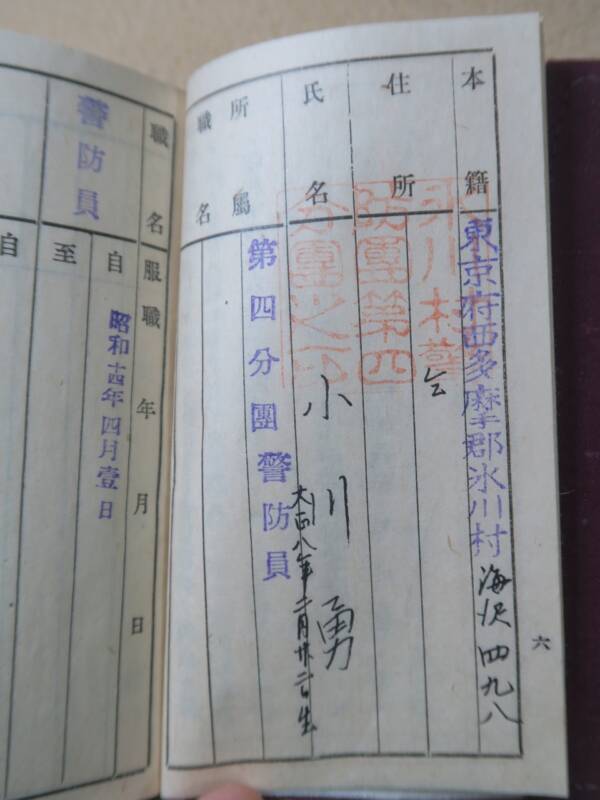 本籍
東京府西多摩郡氷川村海沢四九八
住所
仝
氏名
小川勇
大正八年二月廿二日生
所屬
第四分團警防員
職名
氷川村警
防團第四
分團之印
六
職名
警防員
服職年月日
自昭和十四年四月壹日
至
自